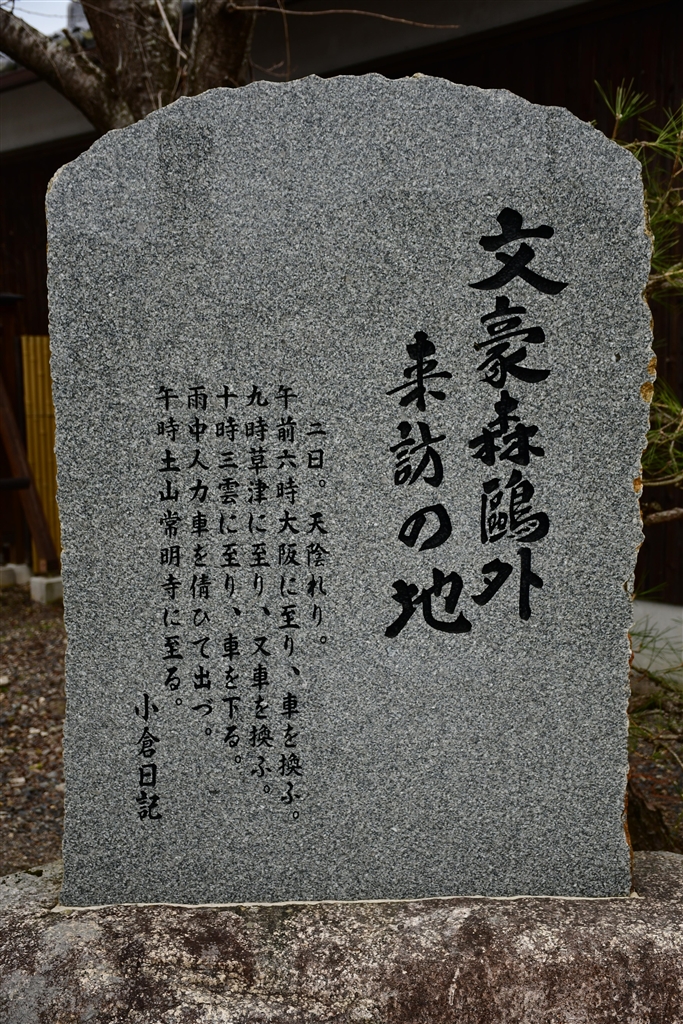 文豪森鷗外
来訪の地
二日。天陰れり。
午前六時大阪に至り、車を換ふ。
九時草津に至り、又車を換ふ。
十時三雲に至り、車を下る。
雨中人力車を倩ひて出づ。
午時土山常明寺に至る。
小倉日記